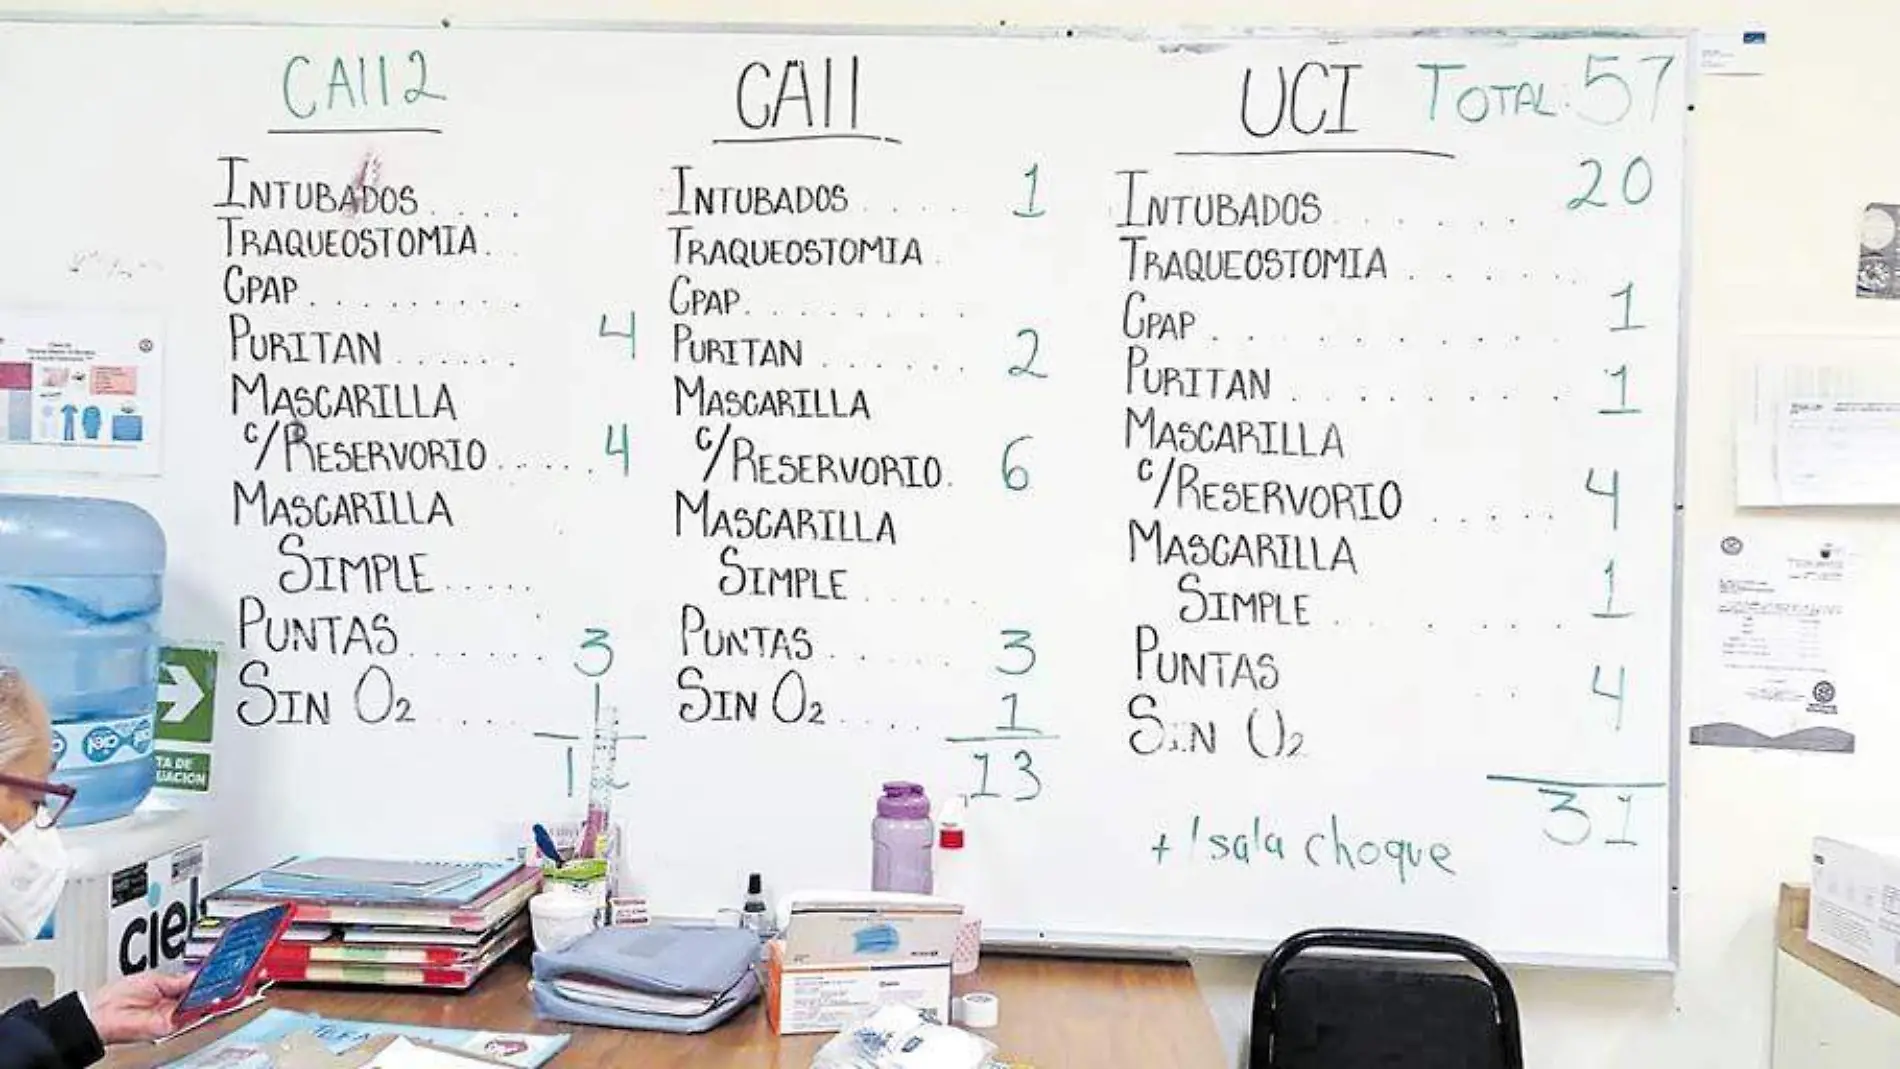 CAII 2
INTUBADOS . . . .
TRAQUEOSTOMIA . .
CPAP . . . . . . . .
PURITAN . . . . . . 4
MASCARILLA
c/RESERVORIO . . . . . 4
MASCARILLA
SIMPLE . . . . .
PUNTAS . . . . . . 3
SIN O2 . . . . 1
CAII
INTUBADOS . . . . 1
TRAQUEOSTOMIA .
CPAP . . . . . . . .
PURITAN . . . . . . 2
MASCARILLA
c/RESERVORIO . 6
MASCARILLA
SIMPLE . . . . .
PUNTAS . . . . . 3
SIN O2 . . . . 1
13
UCI TOTAL: 57
INTUBADOS . . . . . . 20
TRAQUEOSTOMIA . . . . .
CPAP . . . . . . . . . 1
PURITAN . . . . . . . . 1
MASCARILLA
c/RESERVORIO . . . . . 4
MASCARILLA
SIMPLE . . . . . . 1
PUNTAS . . 4
SIN O2
31
+ 1 sala choque
ciel